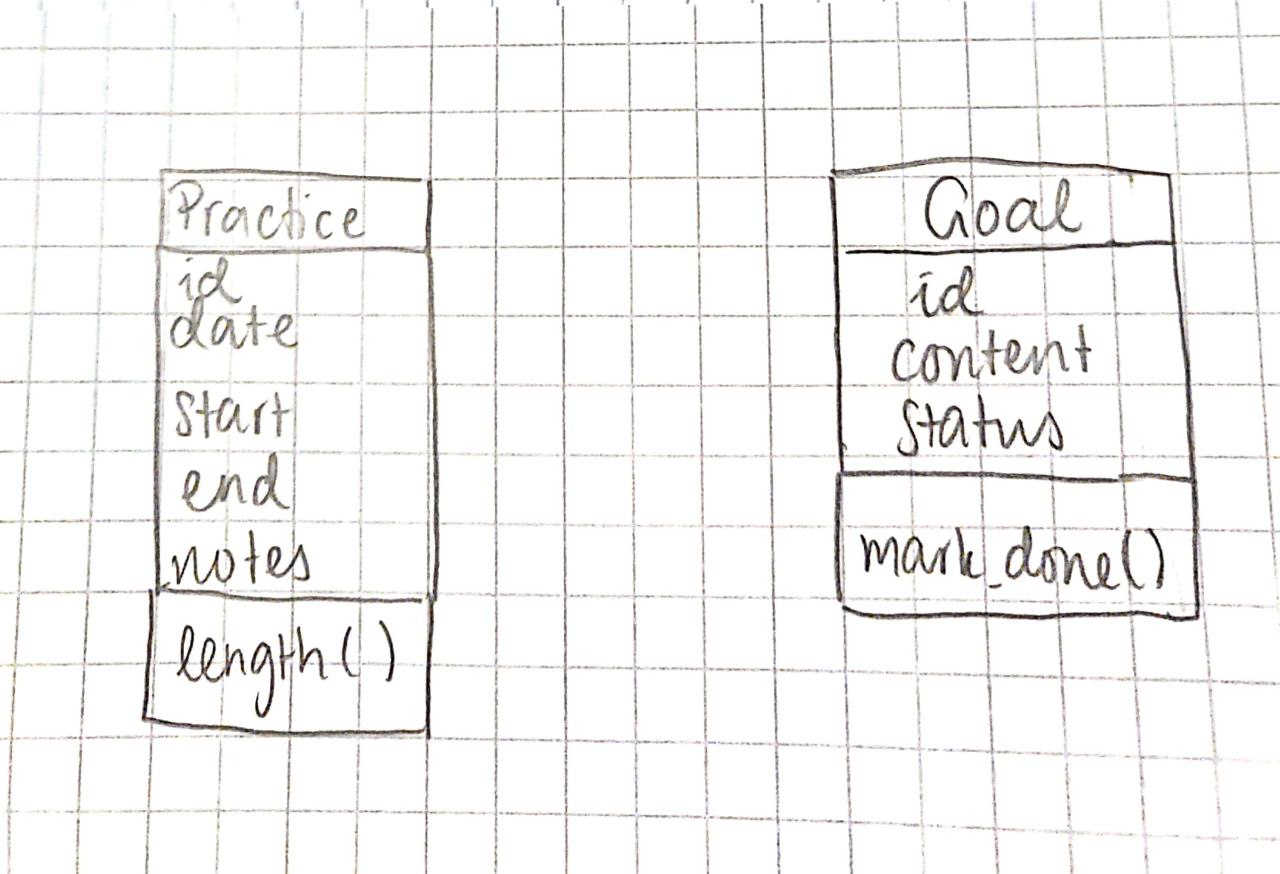 Practice
id
date
start
end
notes
length()
Goal
id
content
status
mark_done()